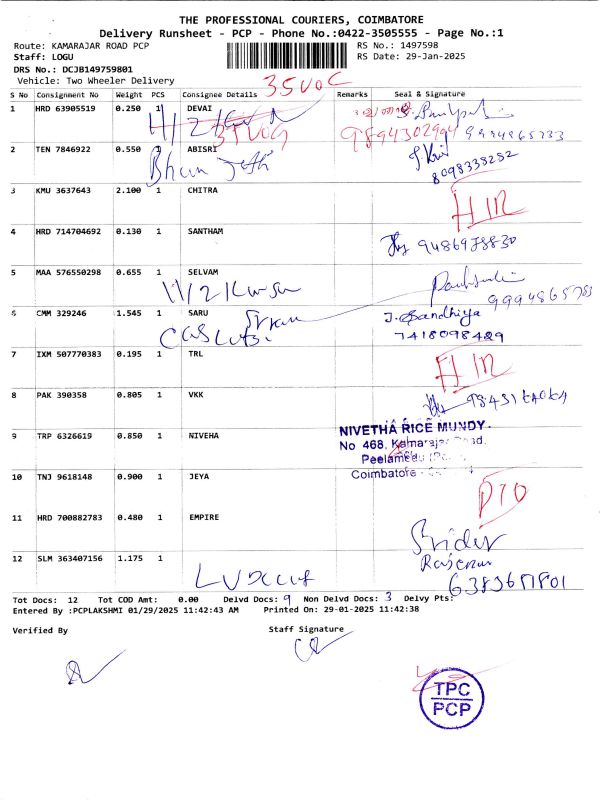 THE PROFESSIONAL COURIERS, COIMBATORE
Delivery Runsheet - PCP - Phone No.:0422-3505555 - Page No.:1
Route: KAMARAJAR ROAD PCP
RS No.: 1497598
Staff: LOGU
RS Date: 29-Jan-2025
DRS No.: DCJB149759801
Vehicle: Two Wheeler Delivery
S No Consignment No Weight PCS Consignee Details Remarks Seal & Signature
1 HRD 63905519 0.250 1 DEVAI
9894302904 9994865733
2 TEN 7846922 0.550 1 ABISRI
8098338252
3 KMU 3637643 2.100 1 CHITRA
4 HRD 714704692 0.130 1 SANTHAM
5 MAA 576550298 0.655 1 SELVAM
6 CMM 329246 1.545 1 SARU
J. Sandhiya
7418098429
7 IXM 507770383 0.195 1 TRL
8 PAK 390358 0.805 1 VKK
9 TRP 6326619 0.850 1 NIVEHA
NIVETHA RICE MUNDY.
No 468, Kamarajar Road,
Peelamedu
Coimbatore
10 TNJ 9618148 0.900 1 JEYA
PTO
11 HRD 700882783 0.480 1 EMPIRE
Sridev
12 SLM 363407156 1.175 1
Tot Docs: 12 Tot COD Amt: 0.00 Delvd Docs: 9 Non Delvd Docs: 3 Delvy Pts:
Entered By :PCPLAKSHMI 01/29/2025 11:42:43 AM Printed On: 29-01-2025 11:42:38
Verified By
Staff Signature
TPC
PCP